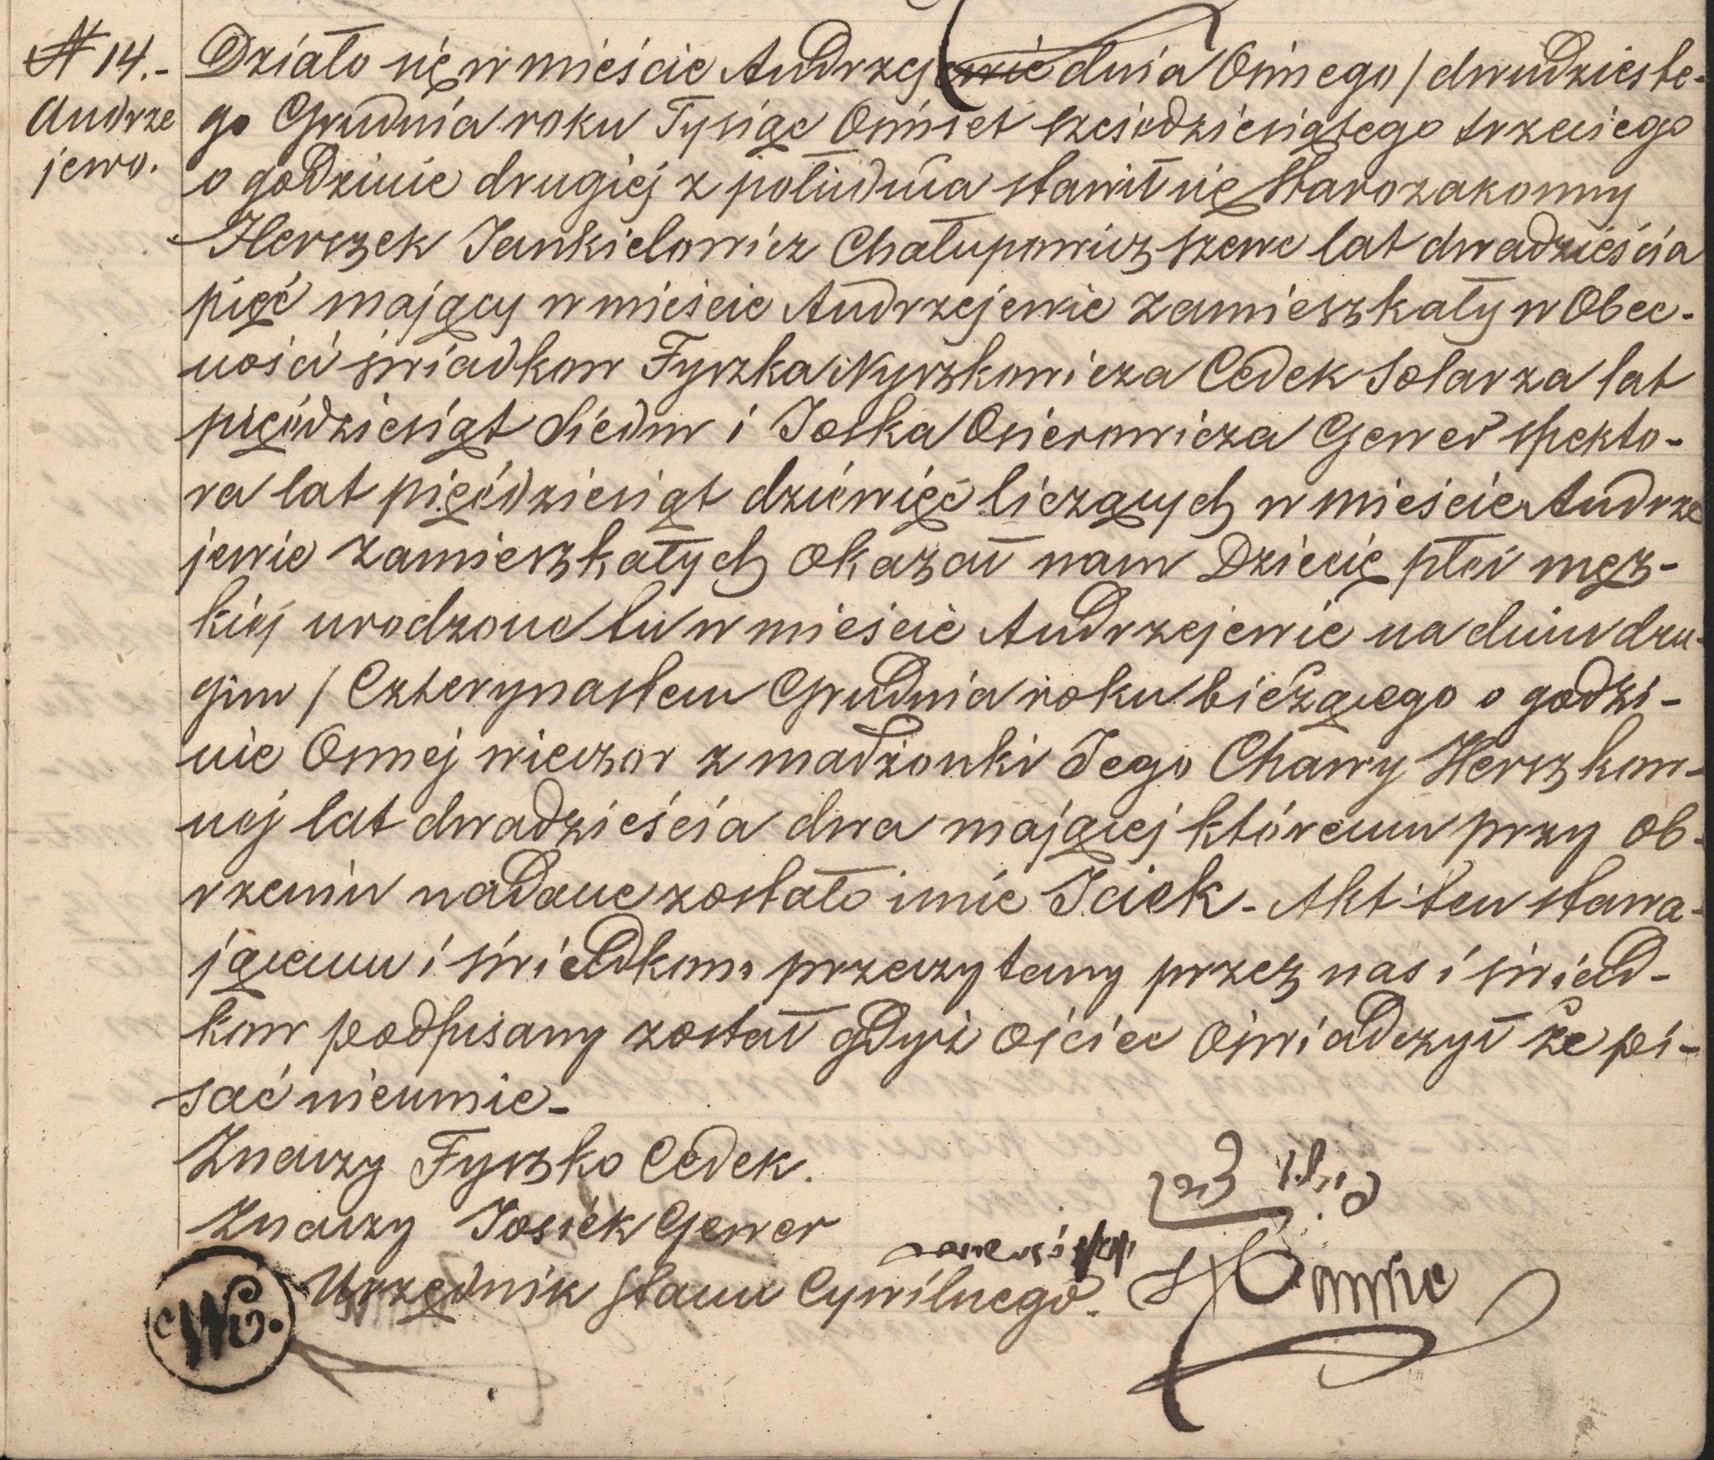 N 14.-
Andrze
jewo.
Działo się w mieście Andrzejewie dnia Osmego / dwudzieste-
go Grudnia roku Tysiąc Osmset sześćdziesiątego trzeciego
o godzinie drugiej z południa stawił się Starozakonny
Herszek Jankielowicz Chałupowicz szewc lat dwadzieścia
pięć mający w mieście Andrzejewie zamieszkały w Obec-
ności świadkow Fyszka Nyszkowicza Cedek Solarza lat
pięćdziesiąt siedm i Joska Osierowicza Gewer spekto-
ra lat pięćdziesiąt dziewięć liczących w mieście Andrze
jewie zamieszkałych okazał nam Dziecię płci męz-
kiej urodzone tu w mieście Andrzejewie na dniu dru-
gim / Czterynastem Grudnia roku bieżącego o godzi-
nie Osmej wieczor z madżonki Jego Chawy Herszkow-
nej lat dwadzieścia dwa mającej któremu przy ob-
rzeniu nadane zostało imie Iciek. Akt ten stawa-
jącemu i świadkom przeczytany przez nas i świad-
kow podpisany został gdyż ojciec oświadczył że pi-
sać nieumie.
Znaczy Fyszko Cedek.
Znaczy Josiek Gewer
Urzędnik Stanu Cywilnego.